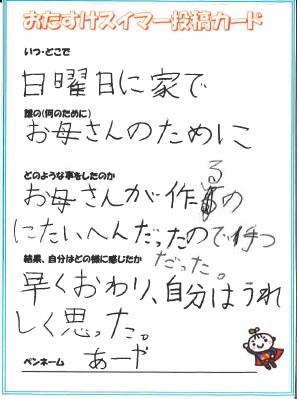 おたすけスイマー投稿カード
いつ・どこで
日曜日に家で
誰の(何のために)
お母さんのために
どのような事をしたのか
お母さんが作るの
にたいへんだったので手つ
だった。
結果、自分はどの様に感じたか
早くおわり、自分はうれ
しく思った。
ペンネーム あーや